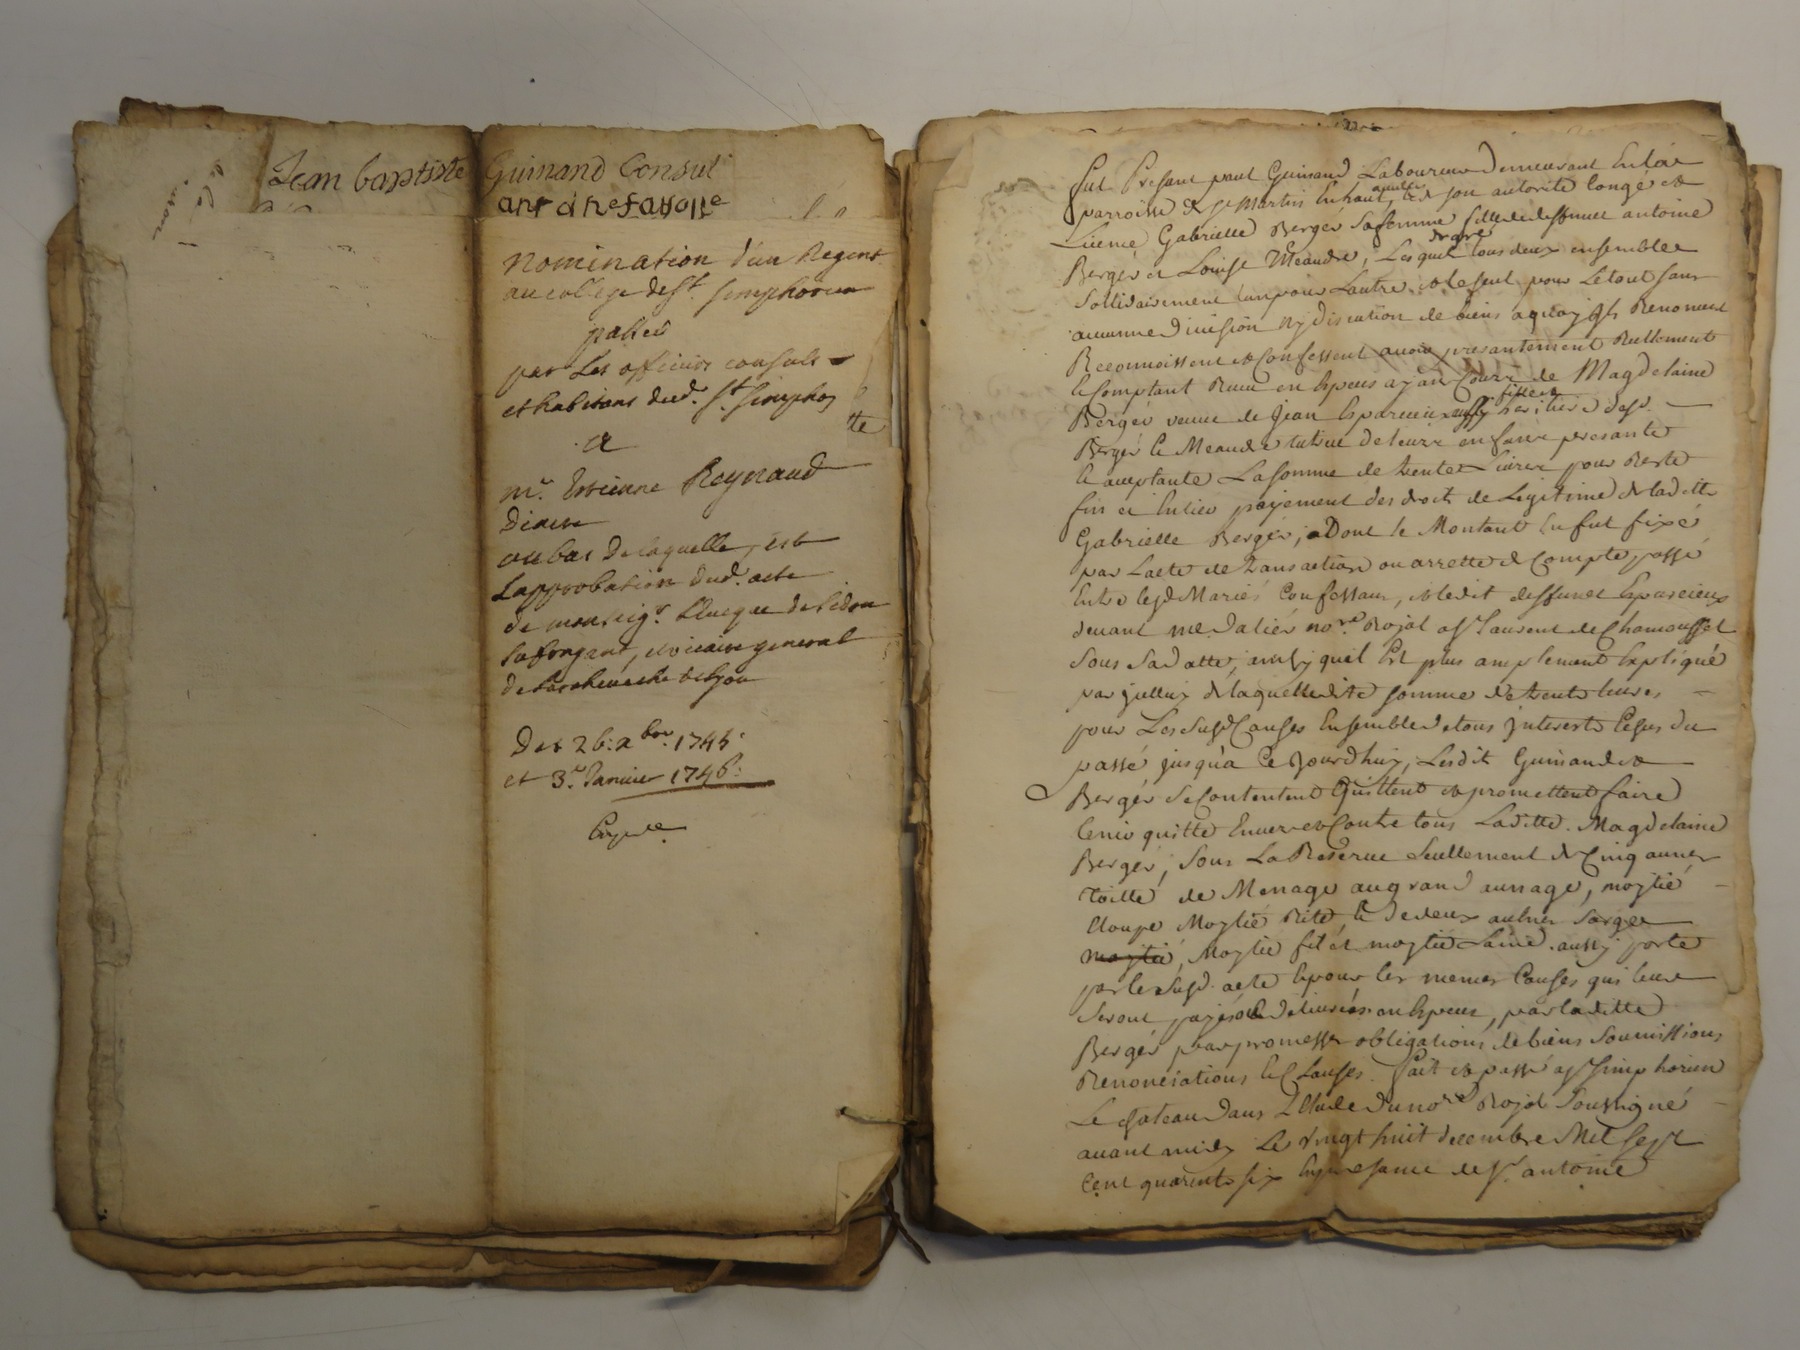 Jean baptiste Guinand Consul
antoine fayolle
nomination d'un Regent
au college de St. simphorien
passée
par Les officiers consuls
et habitans dud. St. Simphor
te
a
mr. Estienne Reynaud
Diacre
au bas de laquelle, est
Lapprobation dud. acte
de monseigr. L'Eveque de Sidon
sufragant, et vicaire general
de Larcheveché de Lyon
Des 26: xbre. 1745:
et 3e. Janvier 1746:
Fut Présant paul Guinand Laboureur Demeurant En la
parroisse de St Martin En haut, et de son autorité Congé et
Licence Gabrielle Berger sa femme fille de deffunct antoine
Berger et Louise Meandre, Lesquels tous deux ensemble
Sollidairement l'un pour Lautre et le seul pour Le tout sans
aucune division Ny discution de biens a quoy ils Renoncent
Reconnoissent et Confessent avoir presantement Reellement
le Comptant Receu en Especes ayan Cours de Magdelaine
Berger veuve de Jean Esparcieu heritiere desd.
Berger et Meandre tutrice de leurs enfans presante
Et acceptante La somme de trente Livres pour Reste
fin et Entier payement des droits de Legitime de laditte
Gabrielle Berger, Dont le Montant En fut fixé
par Lacte de transaction ou arretté de Compte passé
Entre lesd Mariés Confessans, et ledit deffunct Esparcieux
devant me Dalier nore. Royal a St Laurent de Chamousset
Sous Sa datte, ainsy quil Est plus amplement Expliqué
par jcelluy de laquelleditte somme de trente livres
pour Les susd Causes Ensemble de tous Interests Echus du
passé jusqu'a Ce Jourd'huy, Lesdit Guinand et
Berger se Contentent Quittent et promettent faire
tenir quitte Envers et Contre tous Laditte Magdelaine
Berger, Sous La Reserve Seullement de Cinq aunes
Toille de Menage au grand aunage, moytié
Etoupe Moytié Rite, Et de deux aulnes Sarge
moytié, Moytié fil et moytié Laine aussy porté
par le susd. acte Et pour les memes Causes qui leur
Seront payés ou délivrés en Especes, par laditte
Berger par promesses obligations de biens Soumissions
Renonciations Et Clauses. Fait et passé a St Simphorien
Le Chateau dans L'Etude du nore Royal Soussigné
avant midy Le vingt huit decembre Mil Sept
Cent quarente six En presance de Sr. antoine